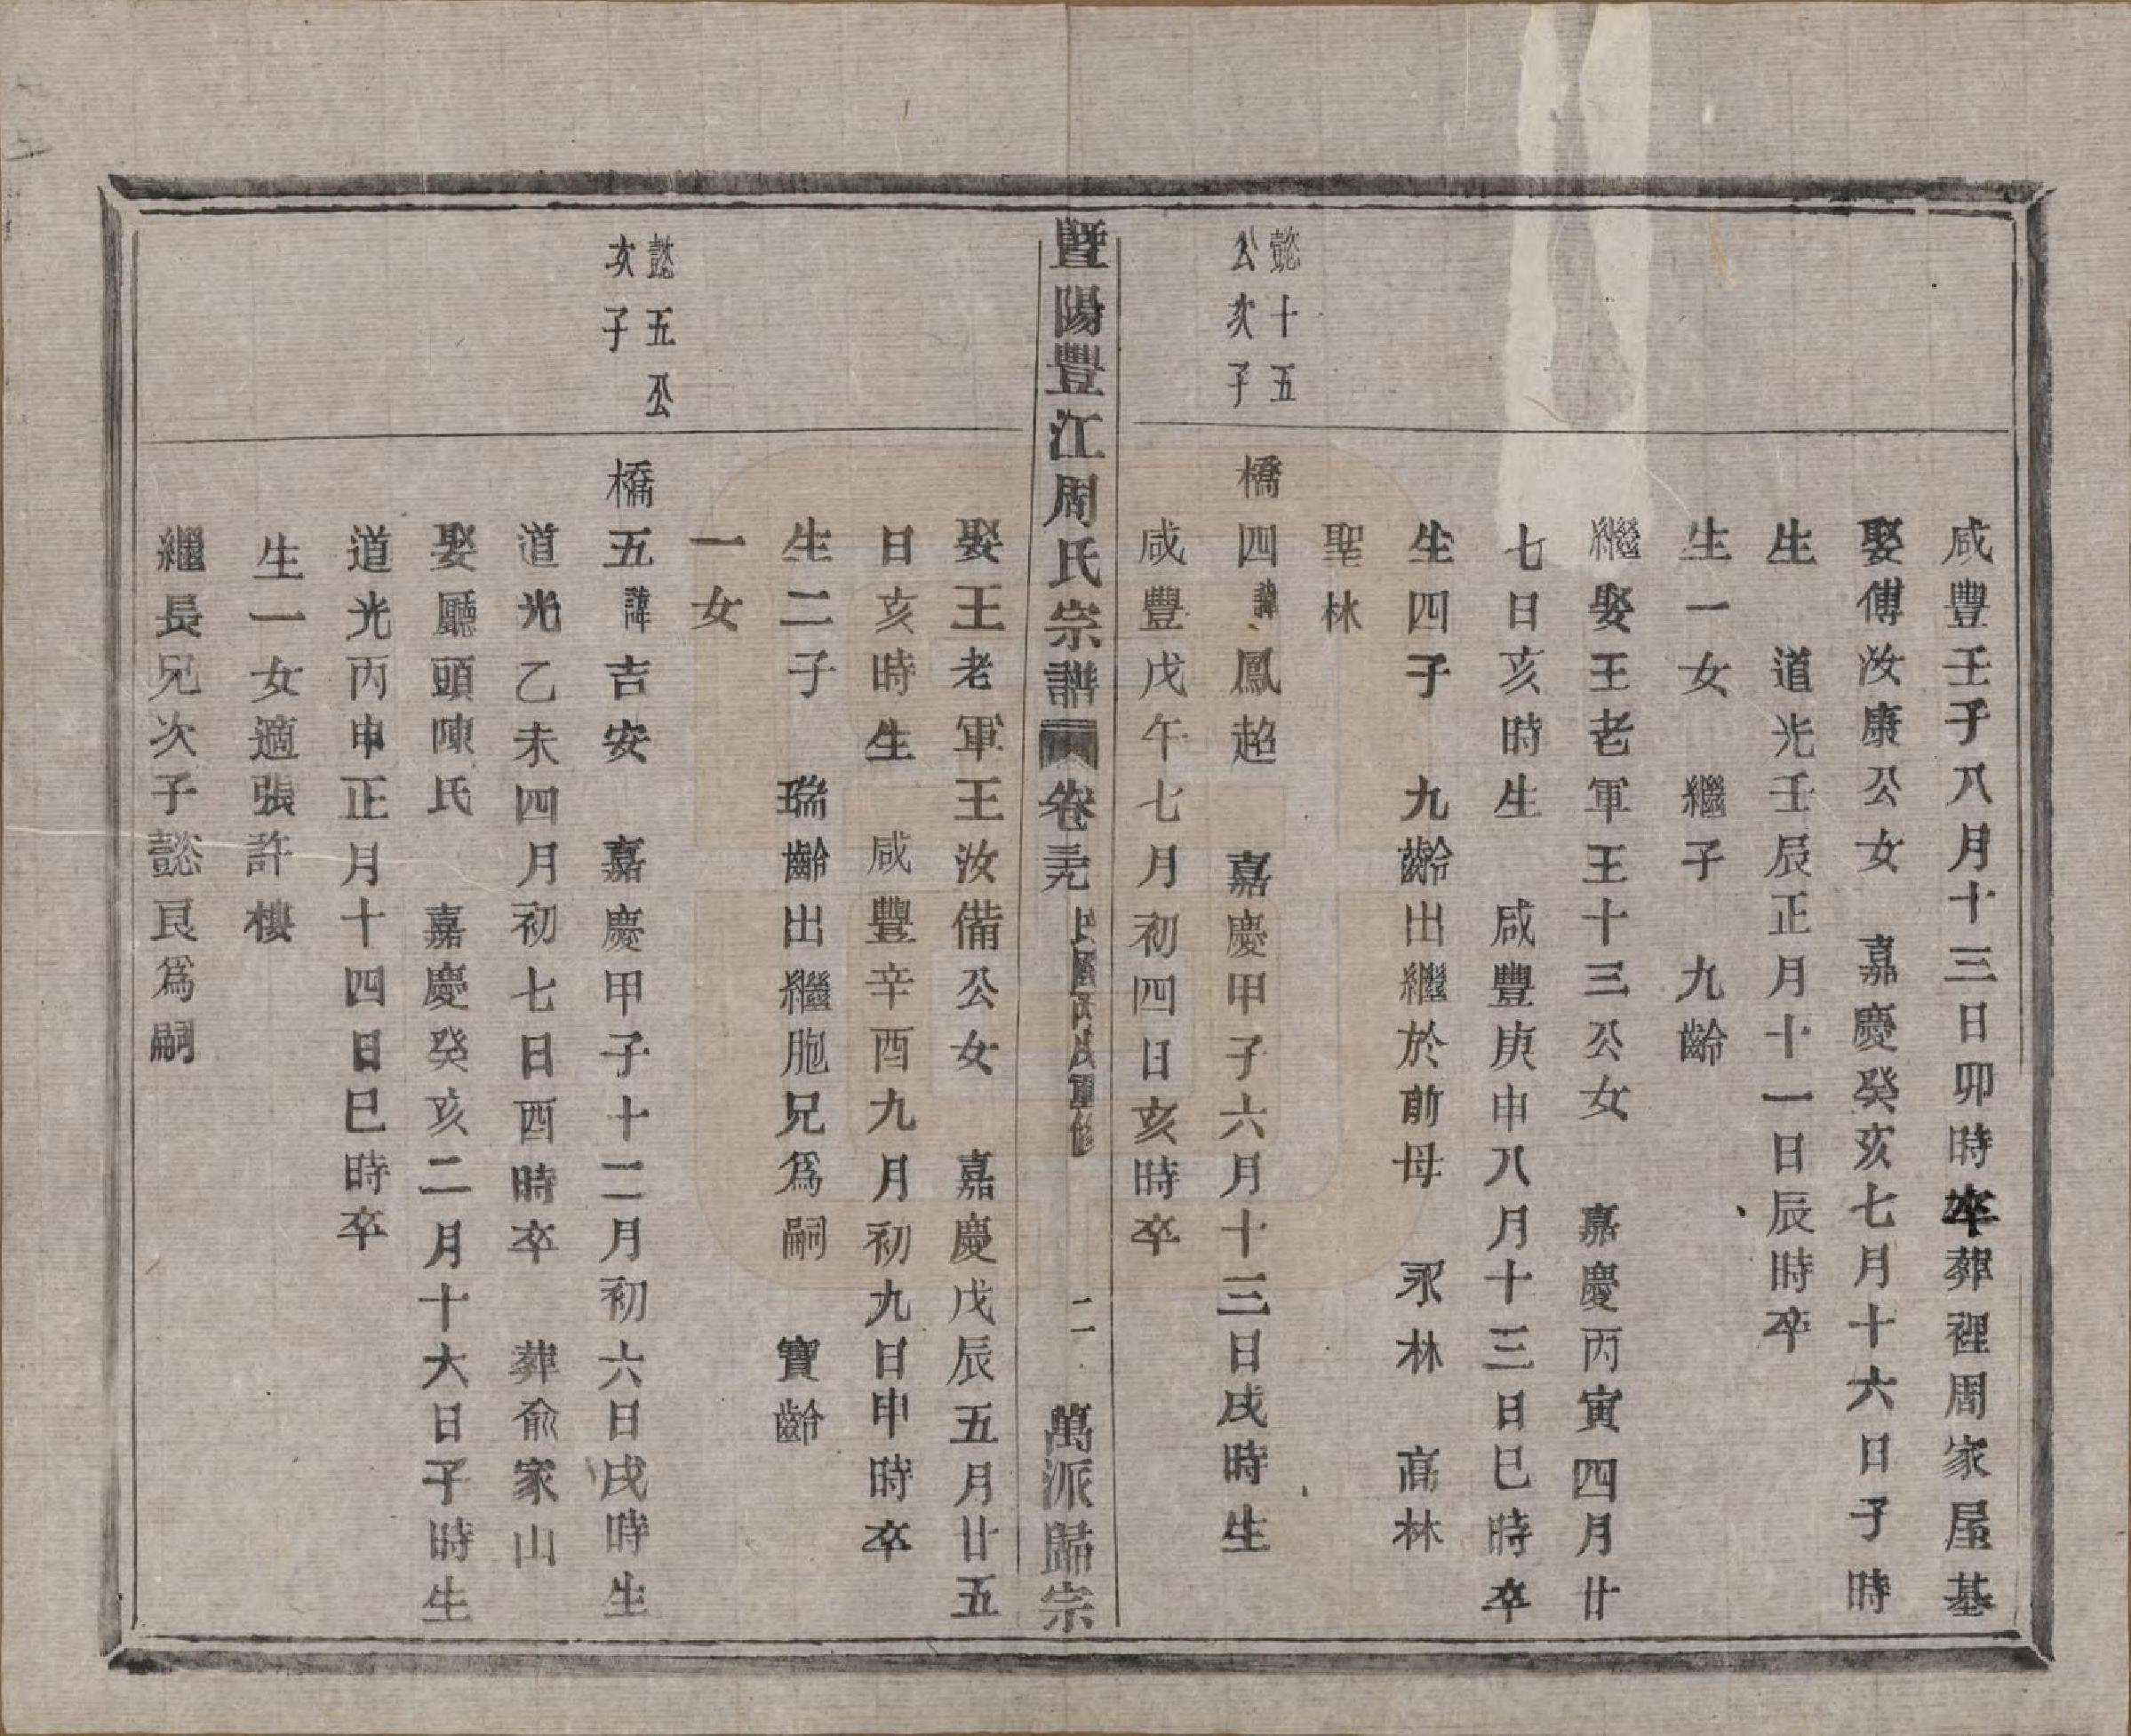 咸豐壬子八月十三日卯時卒葬裡周家屋基
娶傅汝康公女 嘉慶癸亥七月十六日子時
生 道光壬辰正月十一日辰時卒
生一女 繼子 九齡
繼娶王老軍王十三公女 嘉慶丙寅四月廿
七日亥時生 咸豐庚申八月十三日巳時卒
生四子 九齡出繼於前母 永林 高林
聖林
懿十五
公次子
橋四諱鳳超 嘉慶甲子六月十三日戌時生
咸豐戊午七月初四日亥時卒
暨陽豐江周氏宗譜 卷 民國 重修 二 萬派歸宗
娶王老軍王汝備公女 嘉慶戊辰五月廿五
日亥時生 咸豐辛酉九月初九日申時卒
生二子 瑞齡出繼胞兄為嗣 寶齡
一女
懿五公
次子
橋五諱吉安 嘉慶甲子十二月初六日戌時生
道光乙未四月初七日酉時卒 葬俞家山
娶廳頭陳氏 嘉慶癸亥二月十六日子時生
道光丙申正月十四日巳時卒
生一女適張許樓
繼長兄次子懿艮為嗣